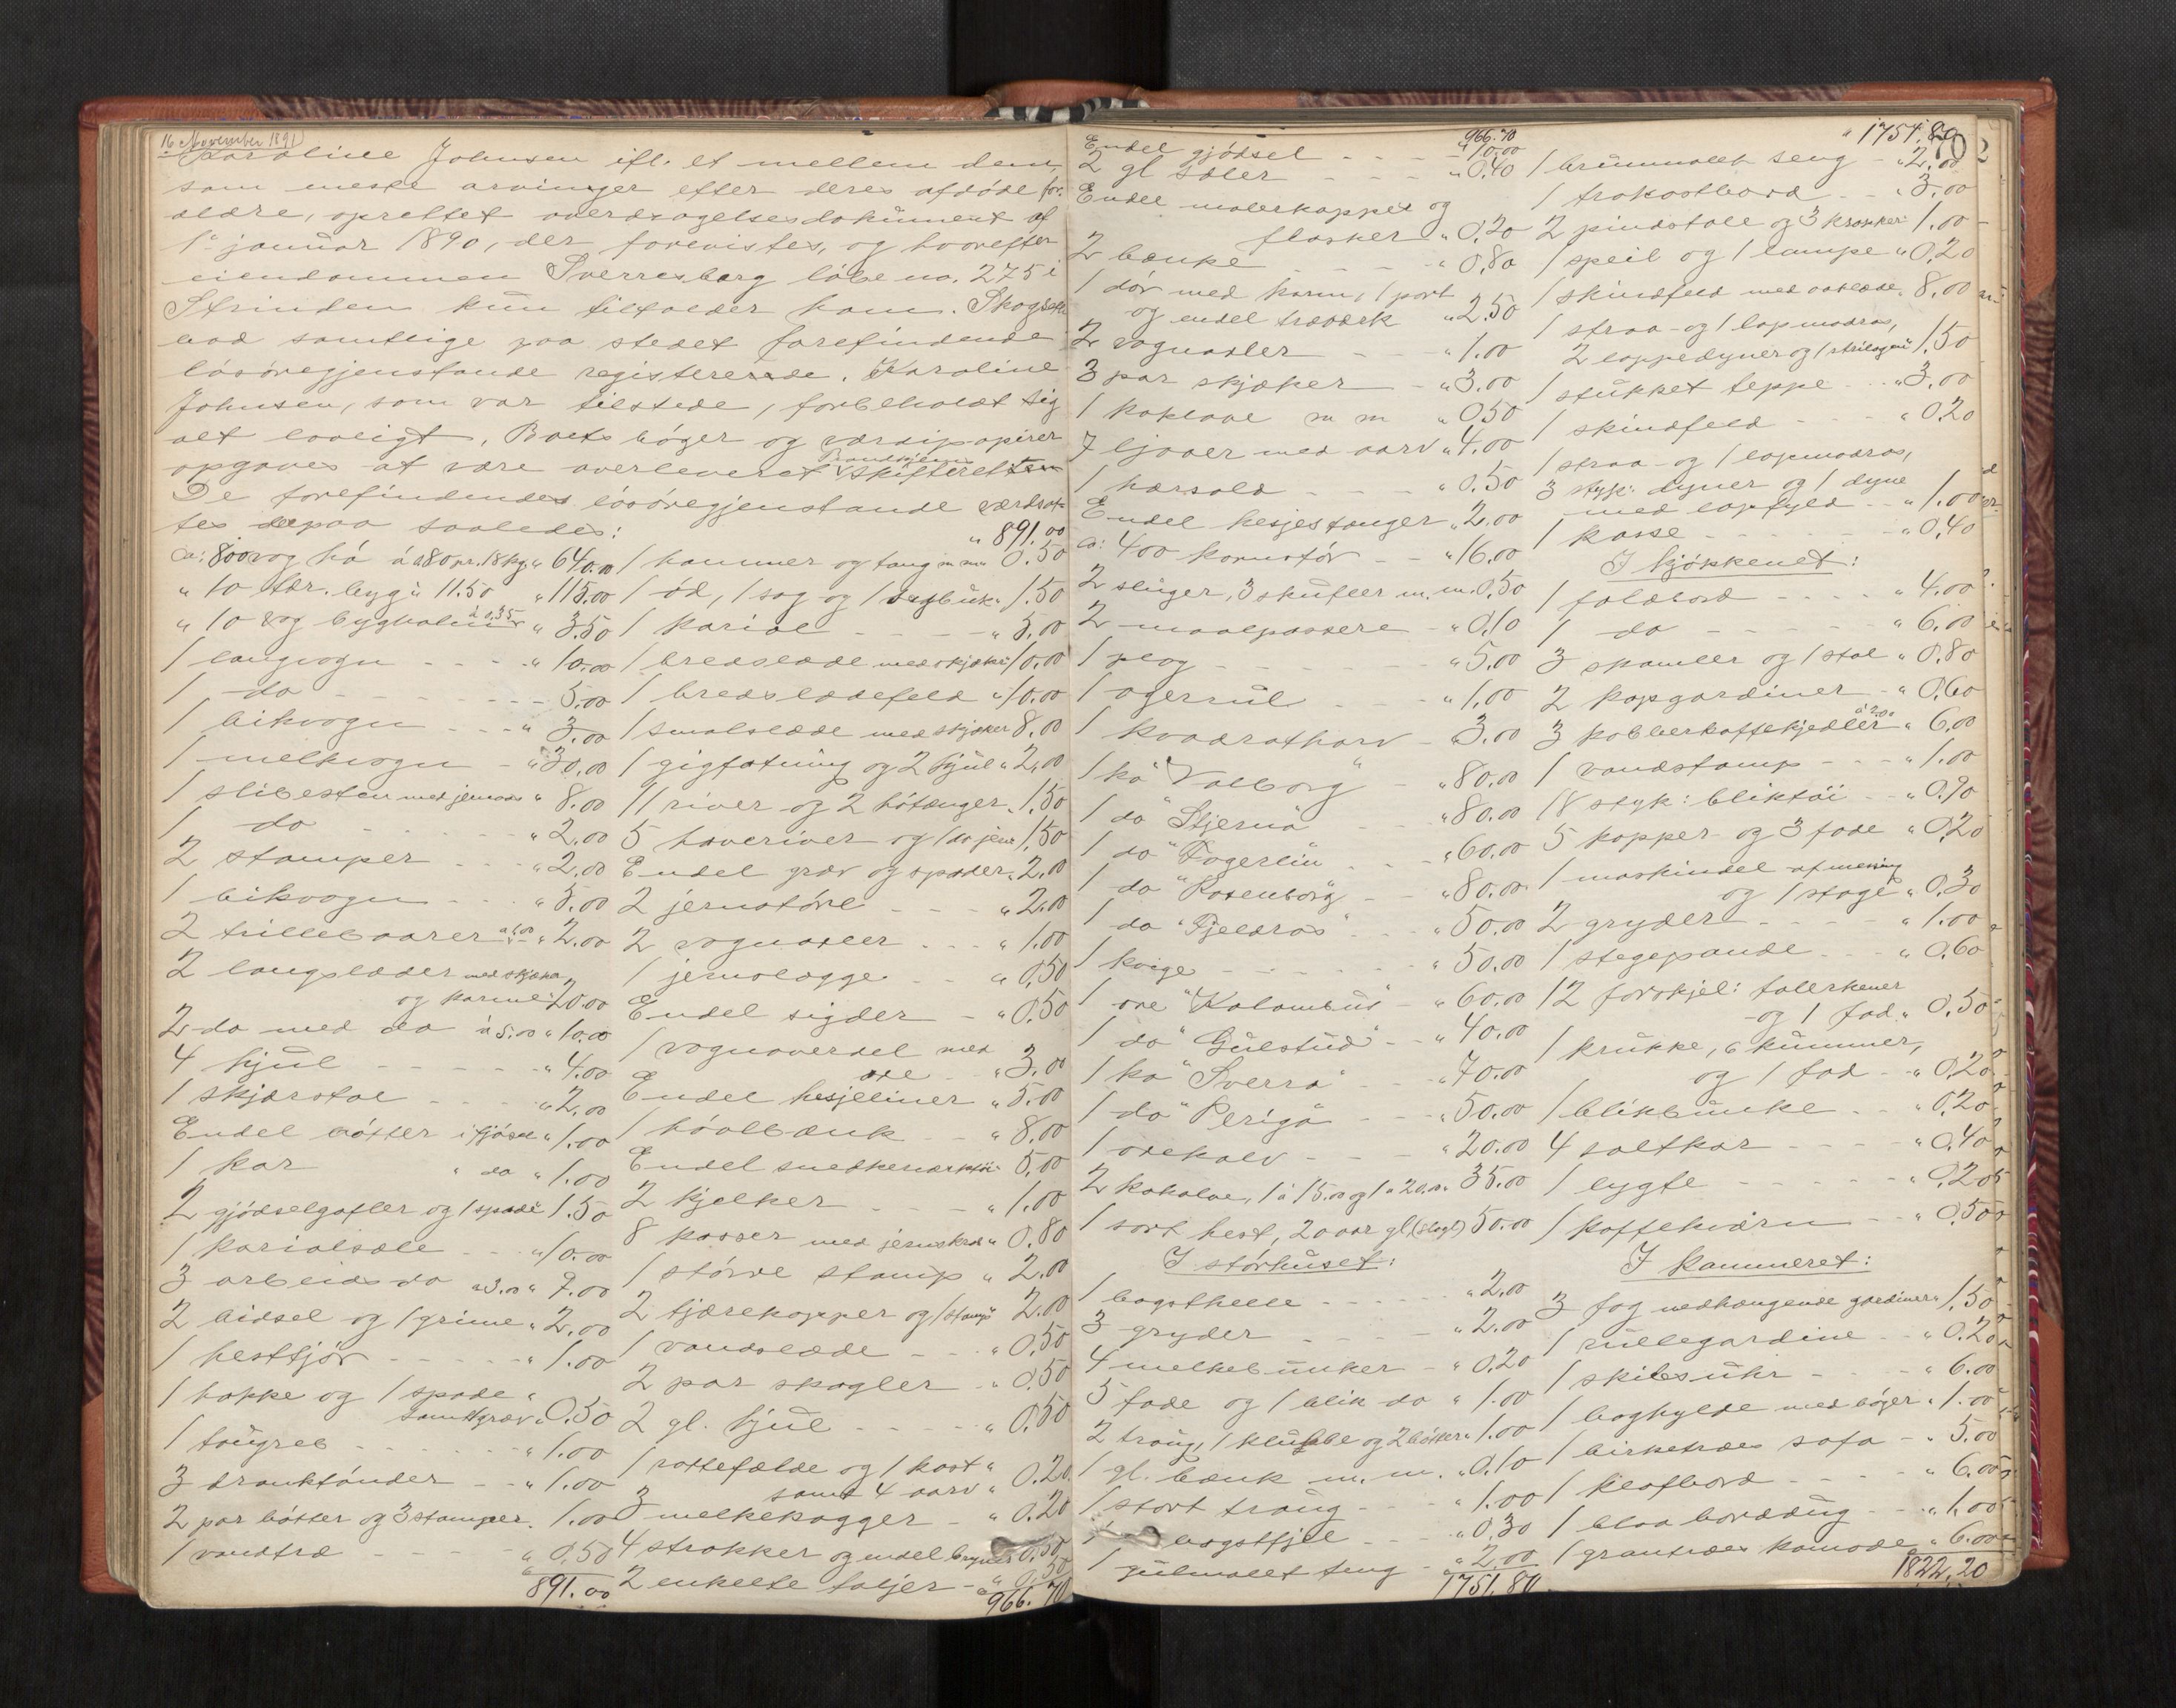 16 November 1891
Karoline Johnsen ifl. et mellem dem,
som eneste arvinger efter deres afdøde for-
ældre, oprettet overdragelsesdokument af
1ste januar 1890, der forevistes, og hvorefter
eiendommen Sverresborg løbe no. 275 i
Strinden kun tilfalder ham.
bad samtlige paa stedet forefindende
løsøregjenstande registrerede. Karoline
Johnsen, som var tilstede, forbeholdt sig
alt lovligt. Boets bøger og værdipapirer
opgaves at være overleveret skifteretten
De forefindendes løsøregjenstande værdsat-
tes derpaa saaledes:
ca: 800 vog hø á 0.80 pr. 18 kg. " 640.00
" 10 tdr. byg á 11.50 " 115.00
" 10 vog byghalm á 0.35 " 3.50
1 langvogn " 10.00
1 do 5.00
1 bikvogn " 3.00
1 melkvogn " 30.00
1 slibesten med jernaas " 8.00
1 do " 2.00
2 stamper " 2.00
1 bikvogn " 5.00
2 trillebaarer á 1.00 " 2.00
2 langslæder med skjæker
og karme " 20.00
2 do med do á 5.00 " 10.00
4 hjul " 4.00
1 skjærstol " 2.00
Endel bøtter i fjøset " 1.00
1 kar " do " 1.00
2 gjødselgafler og 1 spade " 1.50
1 karialsæle " 10.00
3 arbeids do á 3.00 " 9.00
2 bidsel og 1 grime " 2.00
1 hestfjør " 1.00
1 hakke og 1 spade "
samt græv " 0.50
1 taugreb " 1.00
3 dranktønder " 1.00
2 par bøtter og 3 stamper " 1.00
1 vandtræ " 0.50
891.00
" 891.00
1 hammer og tang m m " 0.50
1 od, 1 sag og 1 sagbuk " 1.50
1 kariol " 5.00
1 bredslæde med skjæker " 10.00
1 bredslædefeld " 10.00
1 smalslæde med skjæker 8.00
1 gigfatning og 2 hjul " 2.00
11 river og 2 høtænger " 1.50
5 haveriver og 1 do jern " 1.50
Endel græv og spader " 2.00
2 jernstøre " 2.00
2 vognaxler " 1.00
1 jernlægge " 0.50
Endel sigder " 0.50
1 vognoverdel med
" 3.00
Endel hesjeliner " 5.00
1 høvlbænk " 8.00
Endel snedkerværktøi " 5.00
2 kjelker " 1.00
8 kasser med jernskrab " 0.80
1 større stamp " 2.00
2 tjærekopper og 1 stamp " 2.00
1 vandslæde " 0.50
2 par skagler " 0.50
2 gl. hjul " 0.50
1 rottefælde og 1 kost "
samt 4 aarv " 0.20
3 melkekagger " 0.20
4 strokker og endel bryner 0.50
2 enkelte taljer " 0.50
966.70
966.70
Endel gjødsel " 10.00
2 gl sæler " 0.40
Endel malerkopper og
flasker " 0.20
2 bænke " 0.80
1 dør med karm, 1 port
og endel træværk " 2.50
2 vognaxler " 1.00
3 par skjæker " 3.00
1 kaklove m m " 0.50
7 ljaaer med aarv " 4.00
1 harsold " 0.50
Endel hesjestænger " 2.00
ca: 400 kornstør " 16.00
2 sluger, 3 skufler m. m. 0.50
2 maalpassere " 0.10
1 plog " 5.00
1 agerrul " 1.00
1 kvadratharv " 3.00
1 ko "Valborg" " 80.00
1 do "Stjerna" " 80.00
1 do "Fagerlin" " 60.00
1 do "Rosenborg" " 80.00
1 do "Fjeldros" " 50.00
1 kvige " 50.00
1 oxe "Kolombus" " 60.00
1 do "Gulstud" " 40.00
1 ko "Sverra" " 70.00
1 do "Periga" " 50.00
1 oxekalv " 20.00
2 kokalve, 1 á 15.00 og 1 á 20.00 " 35.00
1 sort hest, 20 aar gl. (slagt) 50.00
I størhuset:
1 bagsthelle " 2.00
3 gryder " 2.00
4 melkebunker " 0.20
5 fade og 1 blik do " 1.00
2 traug, 1 klubbe og 2 bøtter " 1.00
1 gl. bænk m. m. " 0.10
1 stort traug " 1.00
bagstfjel " 0.30
1 gulmalet seng " 2.00
1751.80
" 1751.80
1 brunmalet seng " 2.00
1 frokostbord " 3.00
2 pindstole og 3 krakker " 1.00
1 speil og 1 lampe " 0.20
1 skindfeld med aaklæde " 8.00
1 straa- og 1 lapmadras,
2 lappedyner og 1 1.50
1 stukket teppe " 3.00
1 skindfeld " 0.20
1 straa- og 1 lapmadras,
3 styk: dyner og 1 dyne
med lapfyld " 1.00
1 kasse " 0.40
I kjøkkenet:
1 foldbord " 4.00
1 do " 6.00
3 skamler og 1 stol " 0.80
2 kapgardiner " 0.60
3 kobberkaffekjedler á 2.00 " 6.00
1 vandstamp " 1.00
18 styk: bliktøi " 0.90
5 kopper og 3 fade " 0.20
1 maskindel af messing
og 1 stage " 0.30
2 gryder " 1.00
1 stegepande " 0.60
12 forskjel: talerkener
og 1 fad " 0.50
1 krukke, 6 kummer,
og 1 fad " 0.20
1 blikbunke " 0.20
4 saltkar " 0.40
1 lygte " 0.20
1 kaffekværn " 0.50
I kammeret:
3 fag nedhængende gardiner " 1.50
1 rullegardine " 0.20
1 skibsuhr " 6.00
1 boghylde med bøger " 1.00
1 birketræs sofa " 5.00
1 klafbord " 6.00
1 blaa borddug " 1.00
1 grantræs komode " 6.00
1822.20